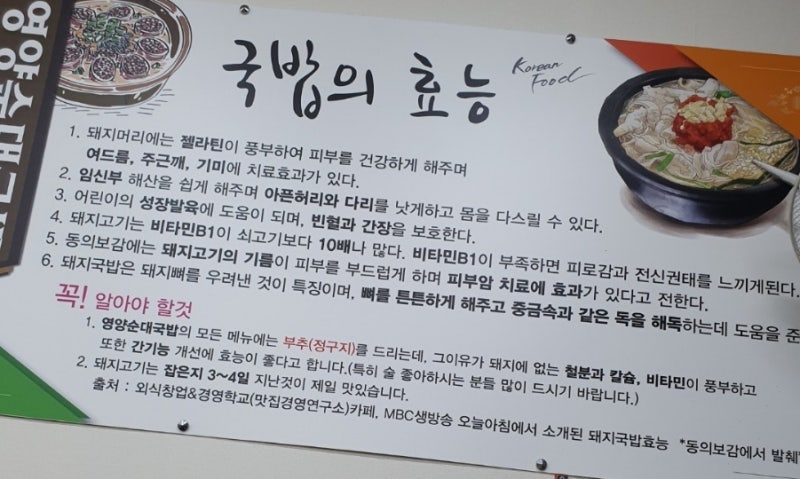 영양순대국밥
국밥의 효능
Korean
Food
1. 돼지머리에는 젤라틴이 풍부하여 피부를 건강하게 해주며
여드름, 주근깨, 기미에 치료효과가 있다.
2. 임신부 해산을 쉽게 해주며 아픈허리와 다리를 낫게하고 몸을 다스릴 수 있다.
3. 어린이의 성장발육에 도움이 되며, 빈혈과 간장을 보호한다.
4. 돼지고기는 비타민B1이 쇠고기보다 10배나 많다. 비타민B1이 부족하면 피로감과 전신권태를 느끼게된다.
5. 동의보감에는 돼지고기의 기름이 피부를 부드럽게 하며 피부암 치료에 효과가 있다고 전한다.
6. 돼지국밥은 돼지뼈를 우려낸 것이 특징이며, 뼈를 튼튼하게 해주고 중금속과 같은 독을 해독하는데 도움을 준
꼭! 알아야 할것
1. 영양순대국밥의 모든 메뉴에는 부추(정구지)를 드리는데, 그이유가 돼지에 없는 철분과 칼슘, 비타민이 풍부하고
또한 간기능 개선에 효능이 좋다고 합니다.(특히 술 좋아하시는 분들 많이 드시기 바랍니다.)
2. 돼지고기는 잡은지 3~4일 지난것이 제일 맛있습니다.
출처 : 외식창업&경영학교(맛집경영연구소)카페, MBC생방송 오늘아침에서 소개된 돼지국밥효능 *동의보감에서 발췌*